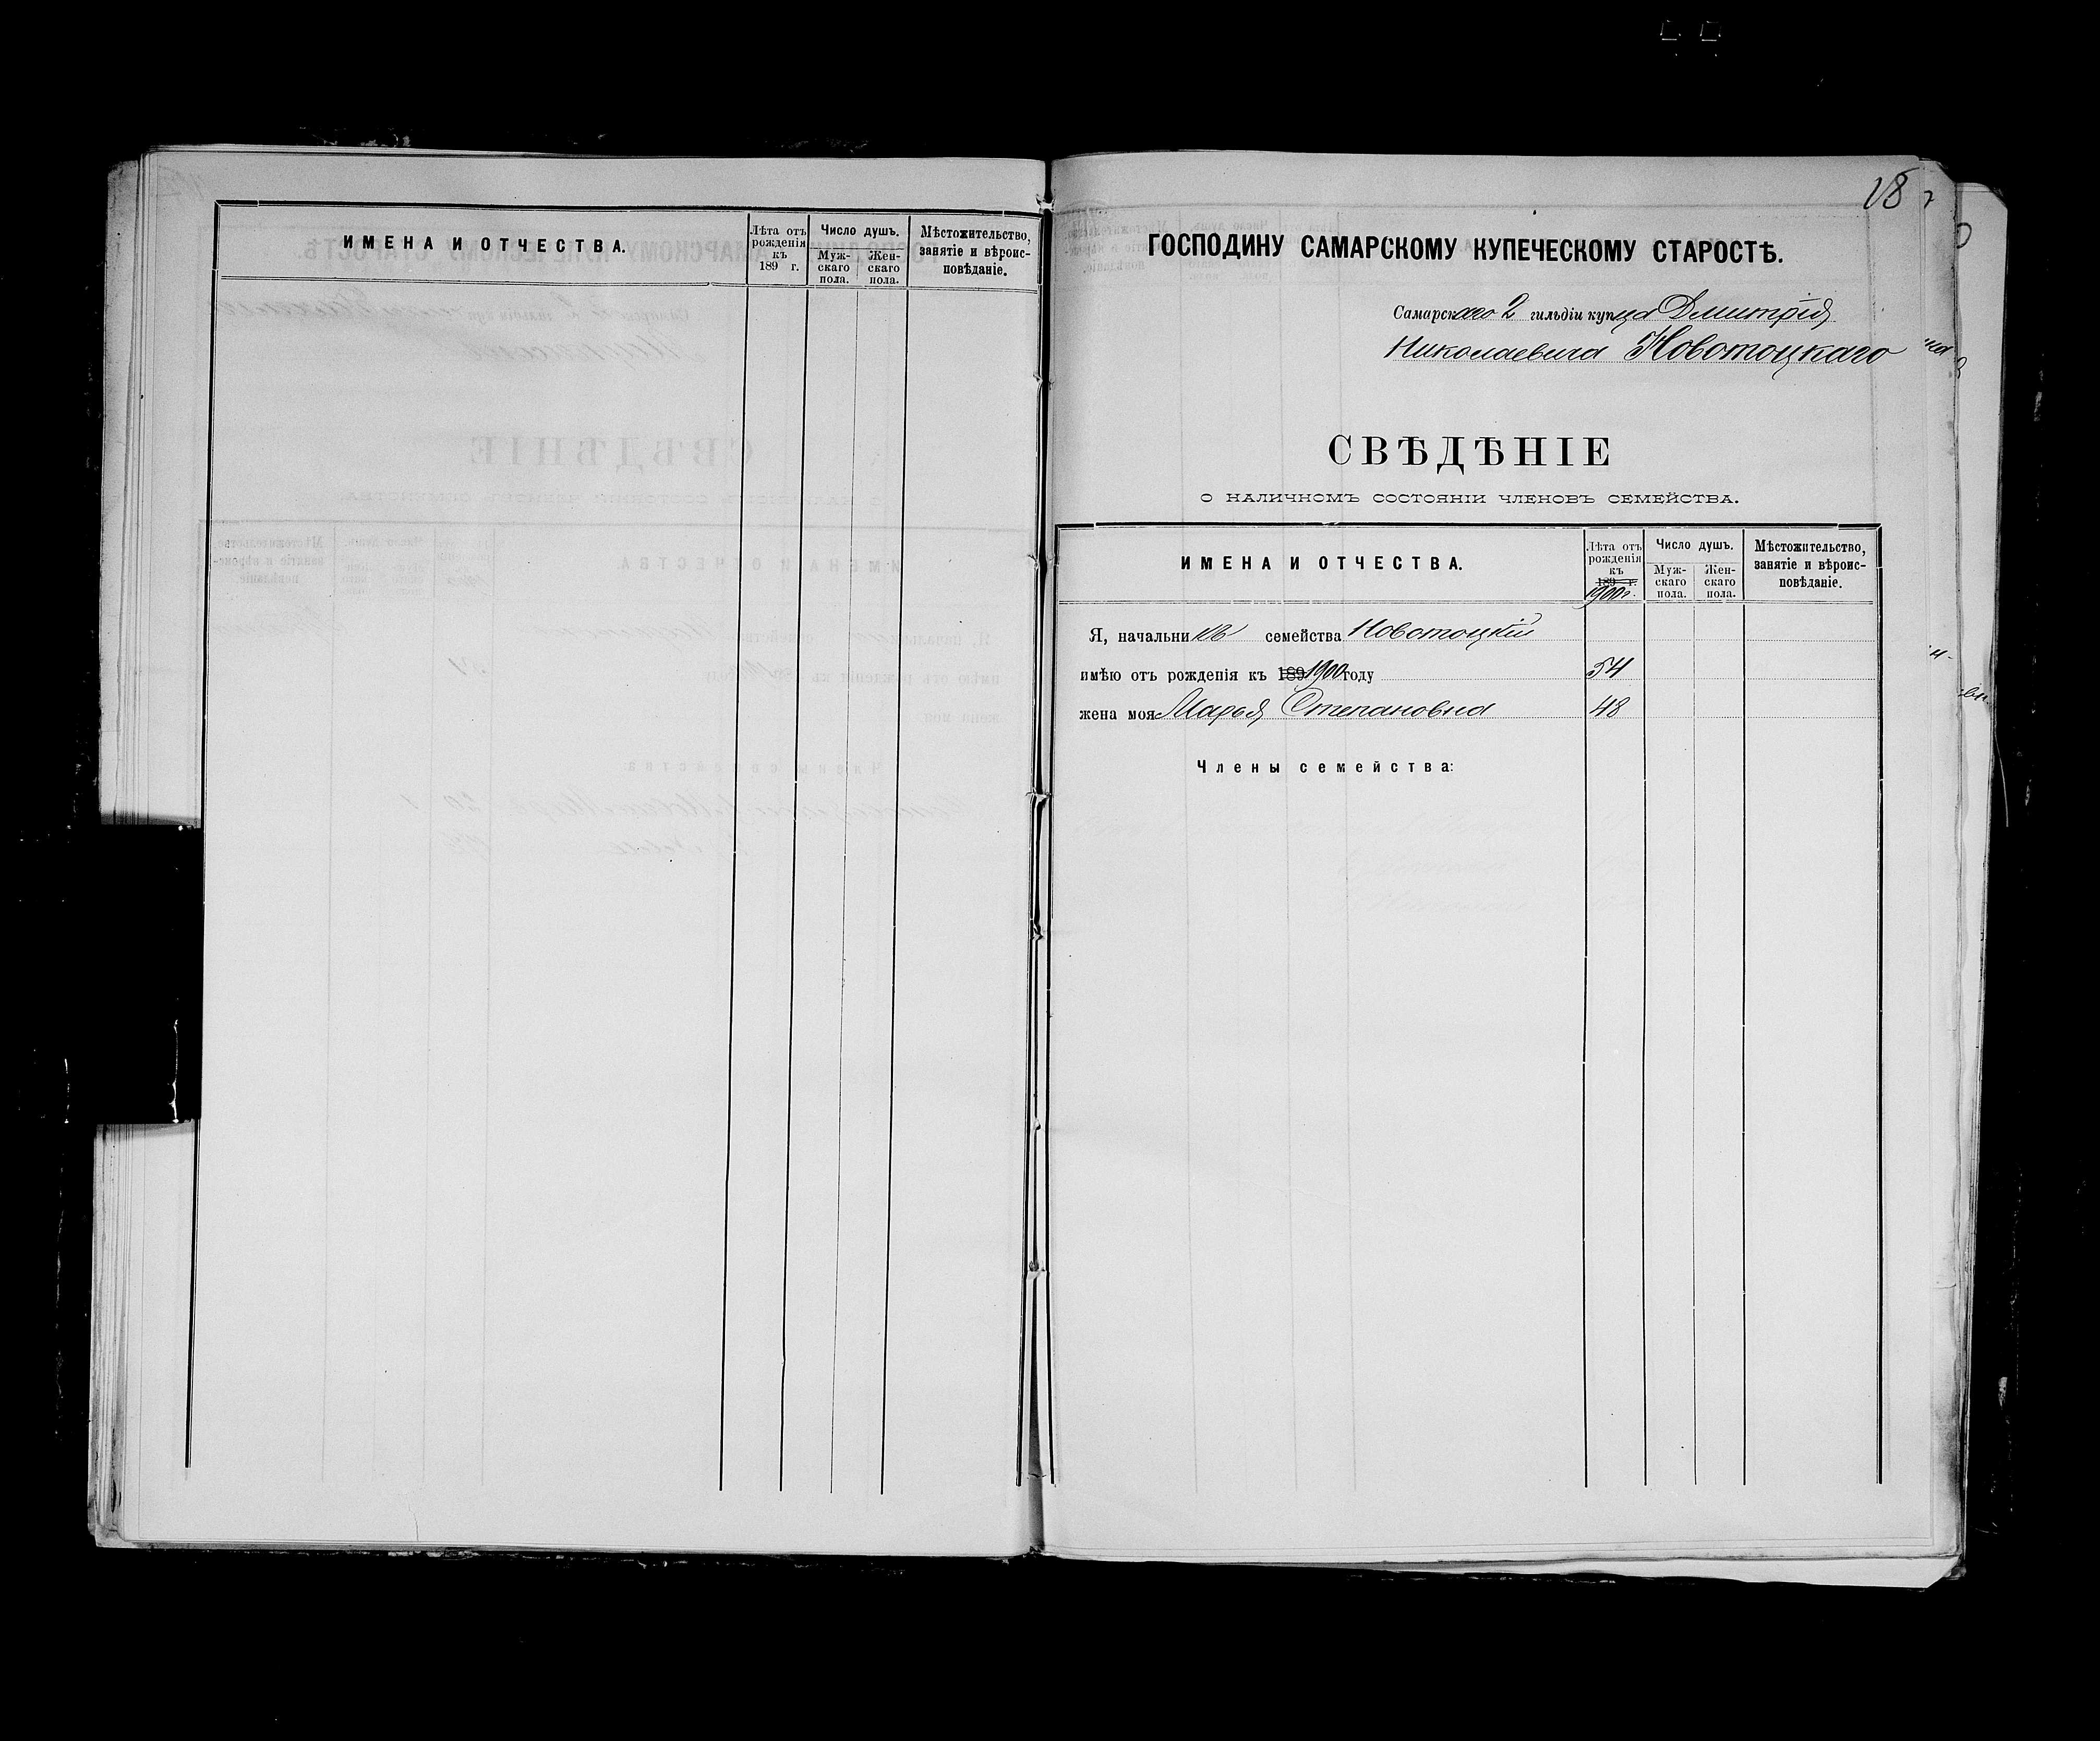 ИМЕНА И ОТЧЕСТВА.
Лѣта отъ рожденія къ 189 г.
Число душъ.
Муж-скаго пола.
Жен-скаго пола.
Мѣстожительство, занятіе и вѣроис-повѣданіе.
18
ГОСПОДИНУ САМАРСКОМУ КУПЕЧЕСКОМУ СТАРОСТѢ.
Самарскаго 2 гильдіи купца Дмитрія
Николаевича Новотоцкаго
СВѢДѢНІЕ
О НАЛИЧНОМЪ СОСТОЯНІИ ЧЛЕНОВЪ СЕМЕЙСТВА.
ИМЕНА И ОТЧЕСТВА.
Лѣта отъ рожденія къ 189 г. 1900 г.
Число душъ.
Муж-скаго пола.
Жен-скаго пола.
Мѣстожительство, занятіе и вѣроис-повѣданіе.
Я, начальникъ семейства Новотоцкій
имѣю отъ рожденія къ 189 1900 году 54
жена моя Марья Степановна 48
Члены семейства: